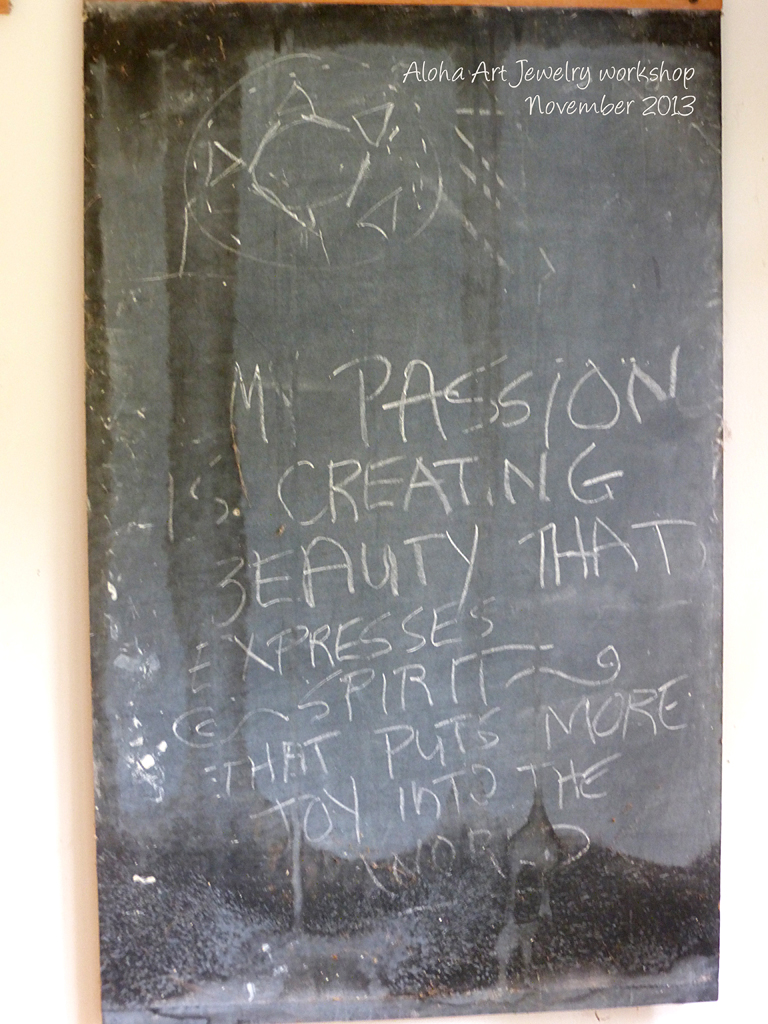 Aloha Art Jewelry workshop
November 2013
MY PASSION
IS CREATING
BEAUTY THAT
EXPRESSES
SPIRIT
THAT PUTS MORE
JOY INTO THE
WORLD